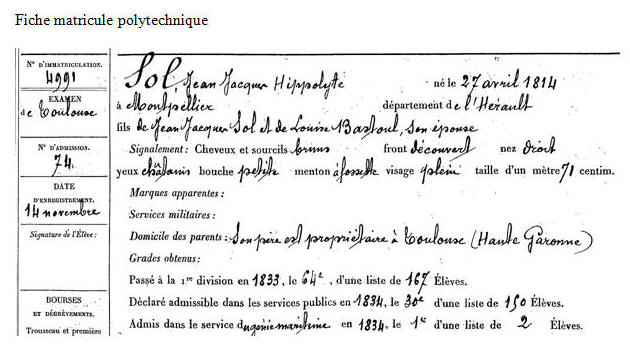 Fiche matricule polytechnique
N° D'IMMATRICULATION.
4991
EXAMEN
de Toulouse
N° D'ADMISSION.
74.
DATE
D'ENREGISTREMENT.
14 novembre
Signature de l'Élève :
BOURSES
ET DÉGRÈVEMENTS.
Trousseau et première
Sol, Jean Jacques Hippolyte né le 27 avril 1814
à Montpellier département de l'Hérault
fils de Jean Jacques Sol et de Louise Bastoul, son épouse
Signalement : Cheveux et sourcils bruns front découvert nez droit
yeux châtains bouche petite menton à fossette visage plein taille d'un mètre 71 centim.
Marques apparentes :
Services militaires :
Domicile des parents : Son père est propriétaire à Toulouse (Haute Garonne)
Grades obtenus :
Passé à la 1re division en 1833, le 64e, d'une liste de 167 Élèves.
Déclaré admissible dans les services publics en 1834, le 30e d'une liste de 150 Élèves.
Admis dans le service du génie maritime en 1834, le 1er d'une liste de 2 Élèves.